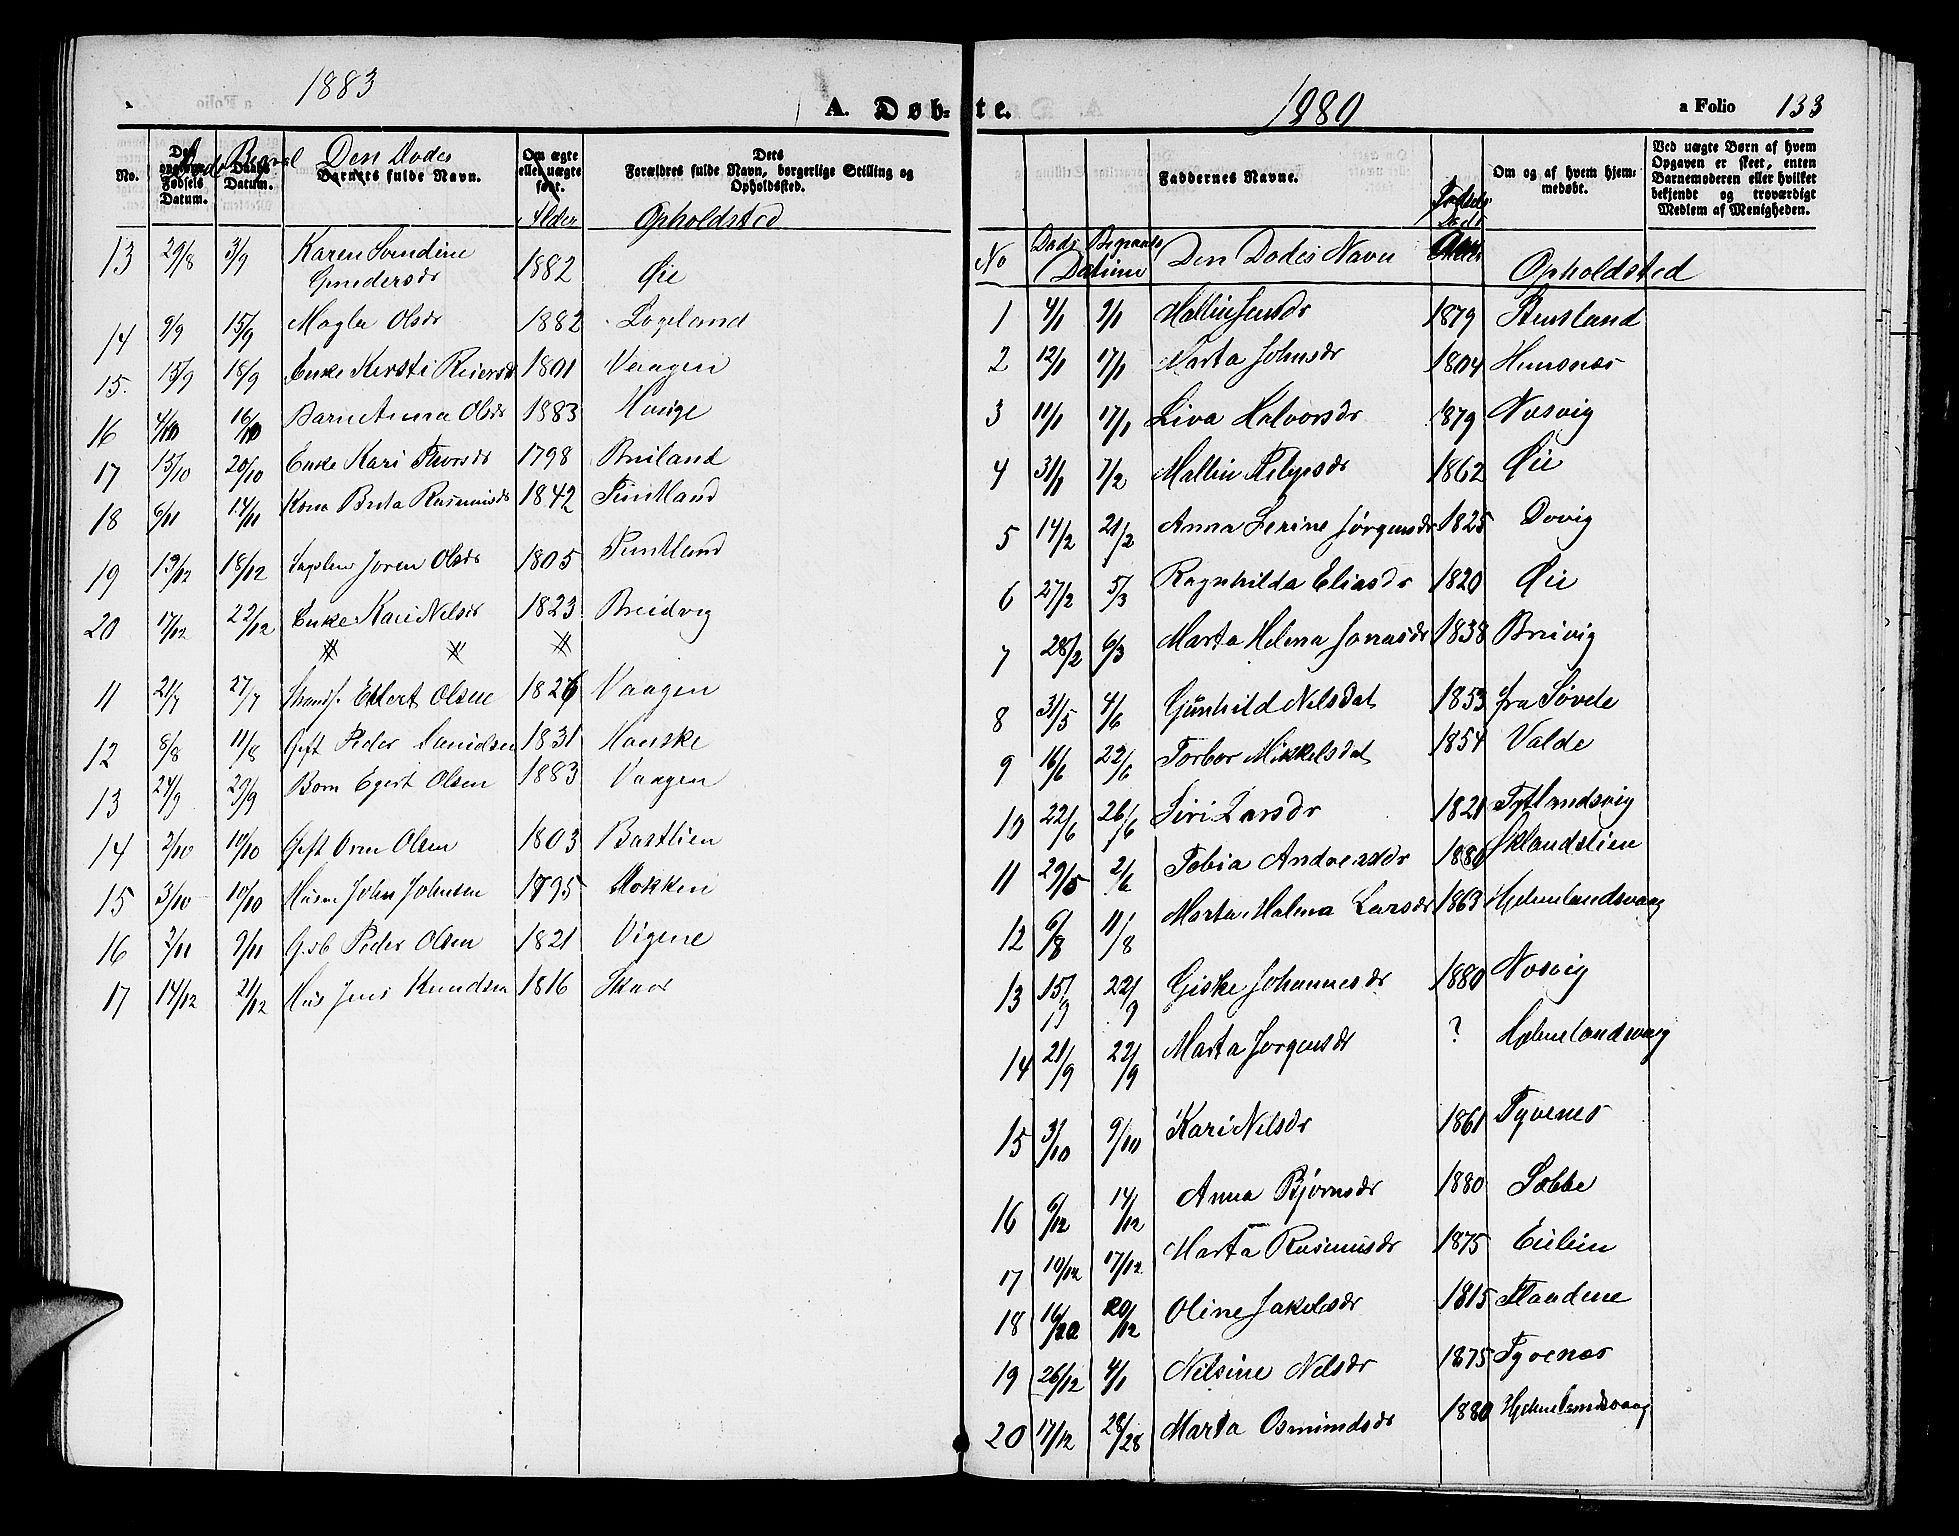 1883
A. Døb-
No.
Døds
Begrav
Datum.
Den Dødes
Barnets fulde Navn.
Om ægte
eller uægte
født.
Alder
Dets
Forældres fulde Navn, borgerlige Stilling og
Opholdsted.
Opholdsted
13 29/8 3/9 Karen Svendine
Gundersdr 1882 Øie
14 9/9 15/9 Magla Olsdr 1882 Logeland
15. 15/9 18/9 Enke Kirsti Reiersd 1801 Vaagen
16 4/10 16/10 Barn Anna Olsdr 1883 Hauge
17 15/10 20/10 Enke Kari Thorsdr 1798 Briland
18 6/11 14/11 Kone Berta Rasmusdr 1842 Tuntland
19 13/12 18/12 Joren Olsdr 1805 Tuntland
20 17/12 22/12 Enke Kari Nelsdr 1823 Breidvig
11 21/7 27/7 Eilert Olsen 1826 Vaagen
12 8/8 11/8 Gift Peder 1831 Hauske
13 24/9 29/9 Barn Egert Olsen 1883 Vaagen
14 2/10 10/10 Gift Oren Olsen 1803 Bastlien
15 3/10 10/10 Husm John Johnsen 1795 Mokken
16 2/11 9/11 Peder Olsen 1821 Vigene
17 14/12 21/12 Hus Jens Knudsen 1816 Skaar
te.
1880
a Folio 133
Faddernes Navne.
Om og af hvem hjem-
medøbt.
Ved uægte Børn af hvem
Opgaven er skeet, enten
Barnemoderen eller hvilket
bekjendt og troværdigt
Medlem af Menigheden.
No Døds Begravs Datum Den Dødes Navn Fødsels Aar Opholdsted
1 4/1 9/1 Mallin Jensdr 1879 Stensland
2 12/1 17/1 Marta Johnsdr 1804 Hunsnes
3 11/1 17/1 Liva Halvorsdr 1879 Nosvig
4 31/1 7/2 Mallin Tebjesdr 1862 Øie
5 14/2 21/2 Anna Serine Jørgensdr 1825 Dovig
6 27/2 5/3 Ragnhilda Eliasdr 1820 Øie
7 28/2 6/3 Marta Helena Jonasdr 1838 Breivig
8 31/5 4/6 Gunhild Nelsdat 1853 fra Søvde
9 16/6 22/6 Torbor Mikkelsdat 1854 Valde
10 22/6 26/6 Siri Larsdr 1821 Tytlandsvig
11 29/5 2/6 Tobia Andersdr 1880 Øklandslien
12 6/8 11/8 Marta Malena Larsdr 1863 Hjelmelandsvaag
13 15/9 22/9 Giske Johannesdr 1880 Nosvig
14 21/9 22/9 Marta Jorgensdr ? Hjelmelandsvaag
15 3/10 9/10 Kari Nelsdr 1861 Tyvenes
16 6/12 14/12 Anna Bjørnsdr 1880 Søbbe
17 10/12 17/12 Marta Rasmusdr 1875 Eielien
18 16/12 20/12 Oline Jakobsdr 1815 Flandene
19 26/12 4/1 Nilsine Nelsdr 1875 Tyvenes
20 17/12 28/28 Marta Osmundsdr 1880 Hjelmelandsvaag